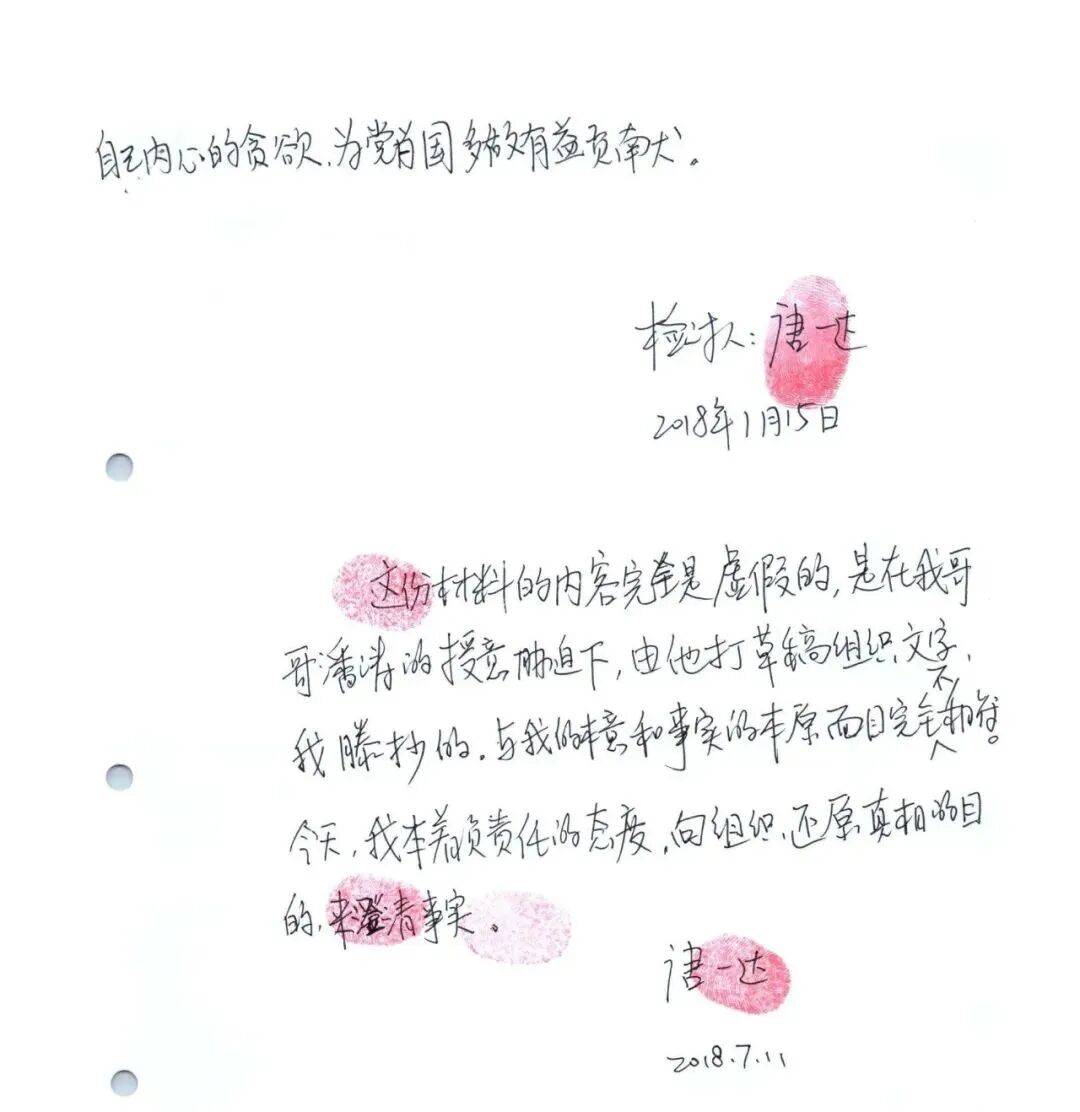 自己内心的贪欲，为党为国多做有益贡献。
检讨人：唐一达
2018年1月15日
这份材料的内容完全是虚假的，是在我哥
哥潘涛的授意胁迫下，由他打草稿组织文字，
我滕抄的，与我的本意和事实的本原面目完全不相符。
今天，我本着负责任的态度，向组织，还原真相的目
的，来澄清事实。
唐一达
2018.7.11